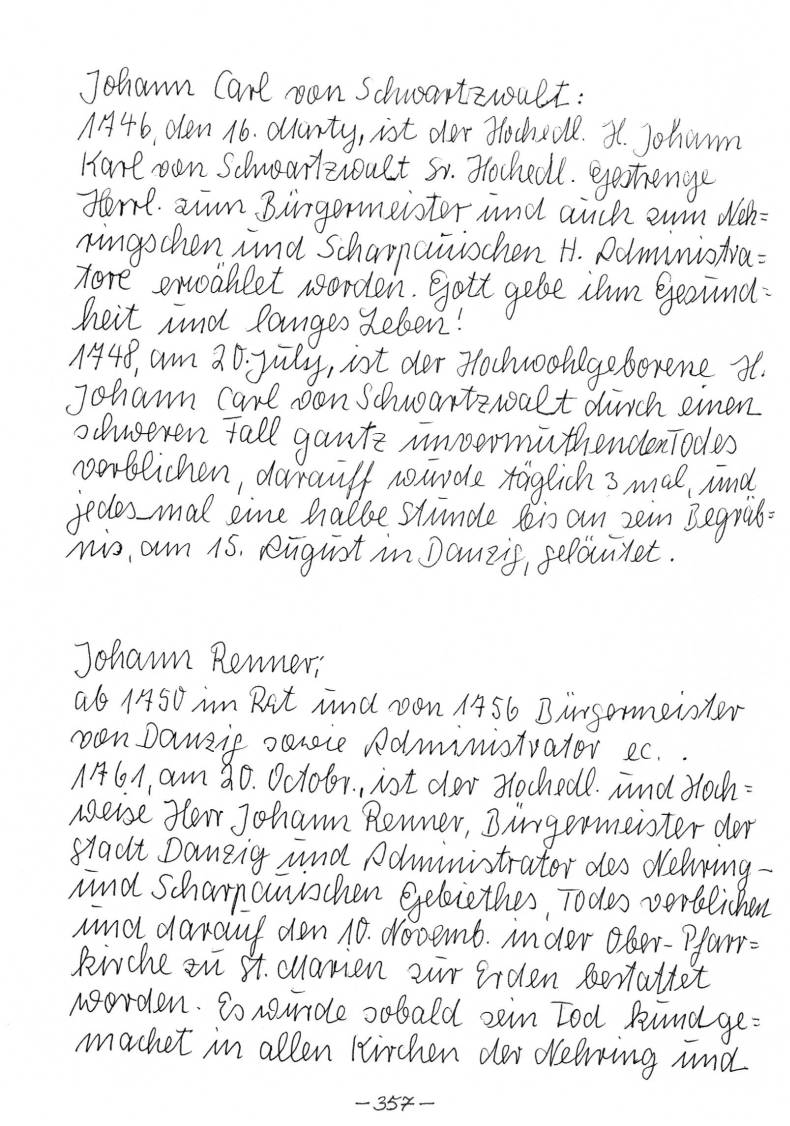 Johann Carl von Schwartzwalt:
1746, den 16. Marty, ist der Hochedl. H. Johann
Karl von Schwartzwalt Sr. Hochedl. Gestrenge
Herrl. zum Bürgermeister und auch zum Neh=
ringschen und Scharpauischen H. Administra=
tore erwählet worden. Gott gebe ihm Gesund=
heit und langes Leben!
1748, am 20. July, ist der Hochwohlgeborene H.
Johann Carl von Schwartzwalt durch einen
schweren Fall gantz unvermuthenden Todes
verblichen, darauff wurde täglich 3 mal, und
jedes mal eine halbe Stunde bis an sein Begräb=
nis, am 15. August in Danzig, geläutet.
Johann Renner;
ab 1750 im Rat und von 1756 Bürgermeister
von Danzig sowie Administrator ec. .
1761, am 20. Octobr., ist der Hochedl. und Hoch=
weise Herr Johann Renner, Bürgermeister der
Stadt Danzig und Administrator des Nehring-
und Scharpauischen Gebiethes, Todes verblichen
und darauf den 10. Novemb. in der Ober-Pfarr=
kirche zu St. Marien zur Erden bestattet
worden. Es wurde sobald sein Tod kund ge=
machet in allen Kirchen der Nehring und
-357-